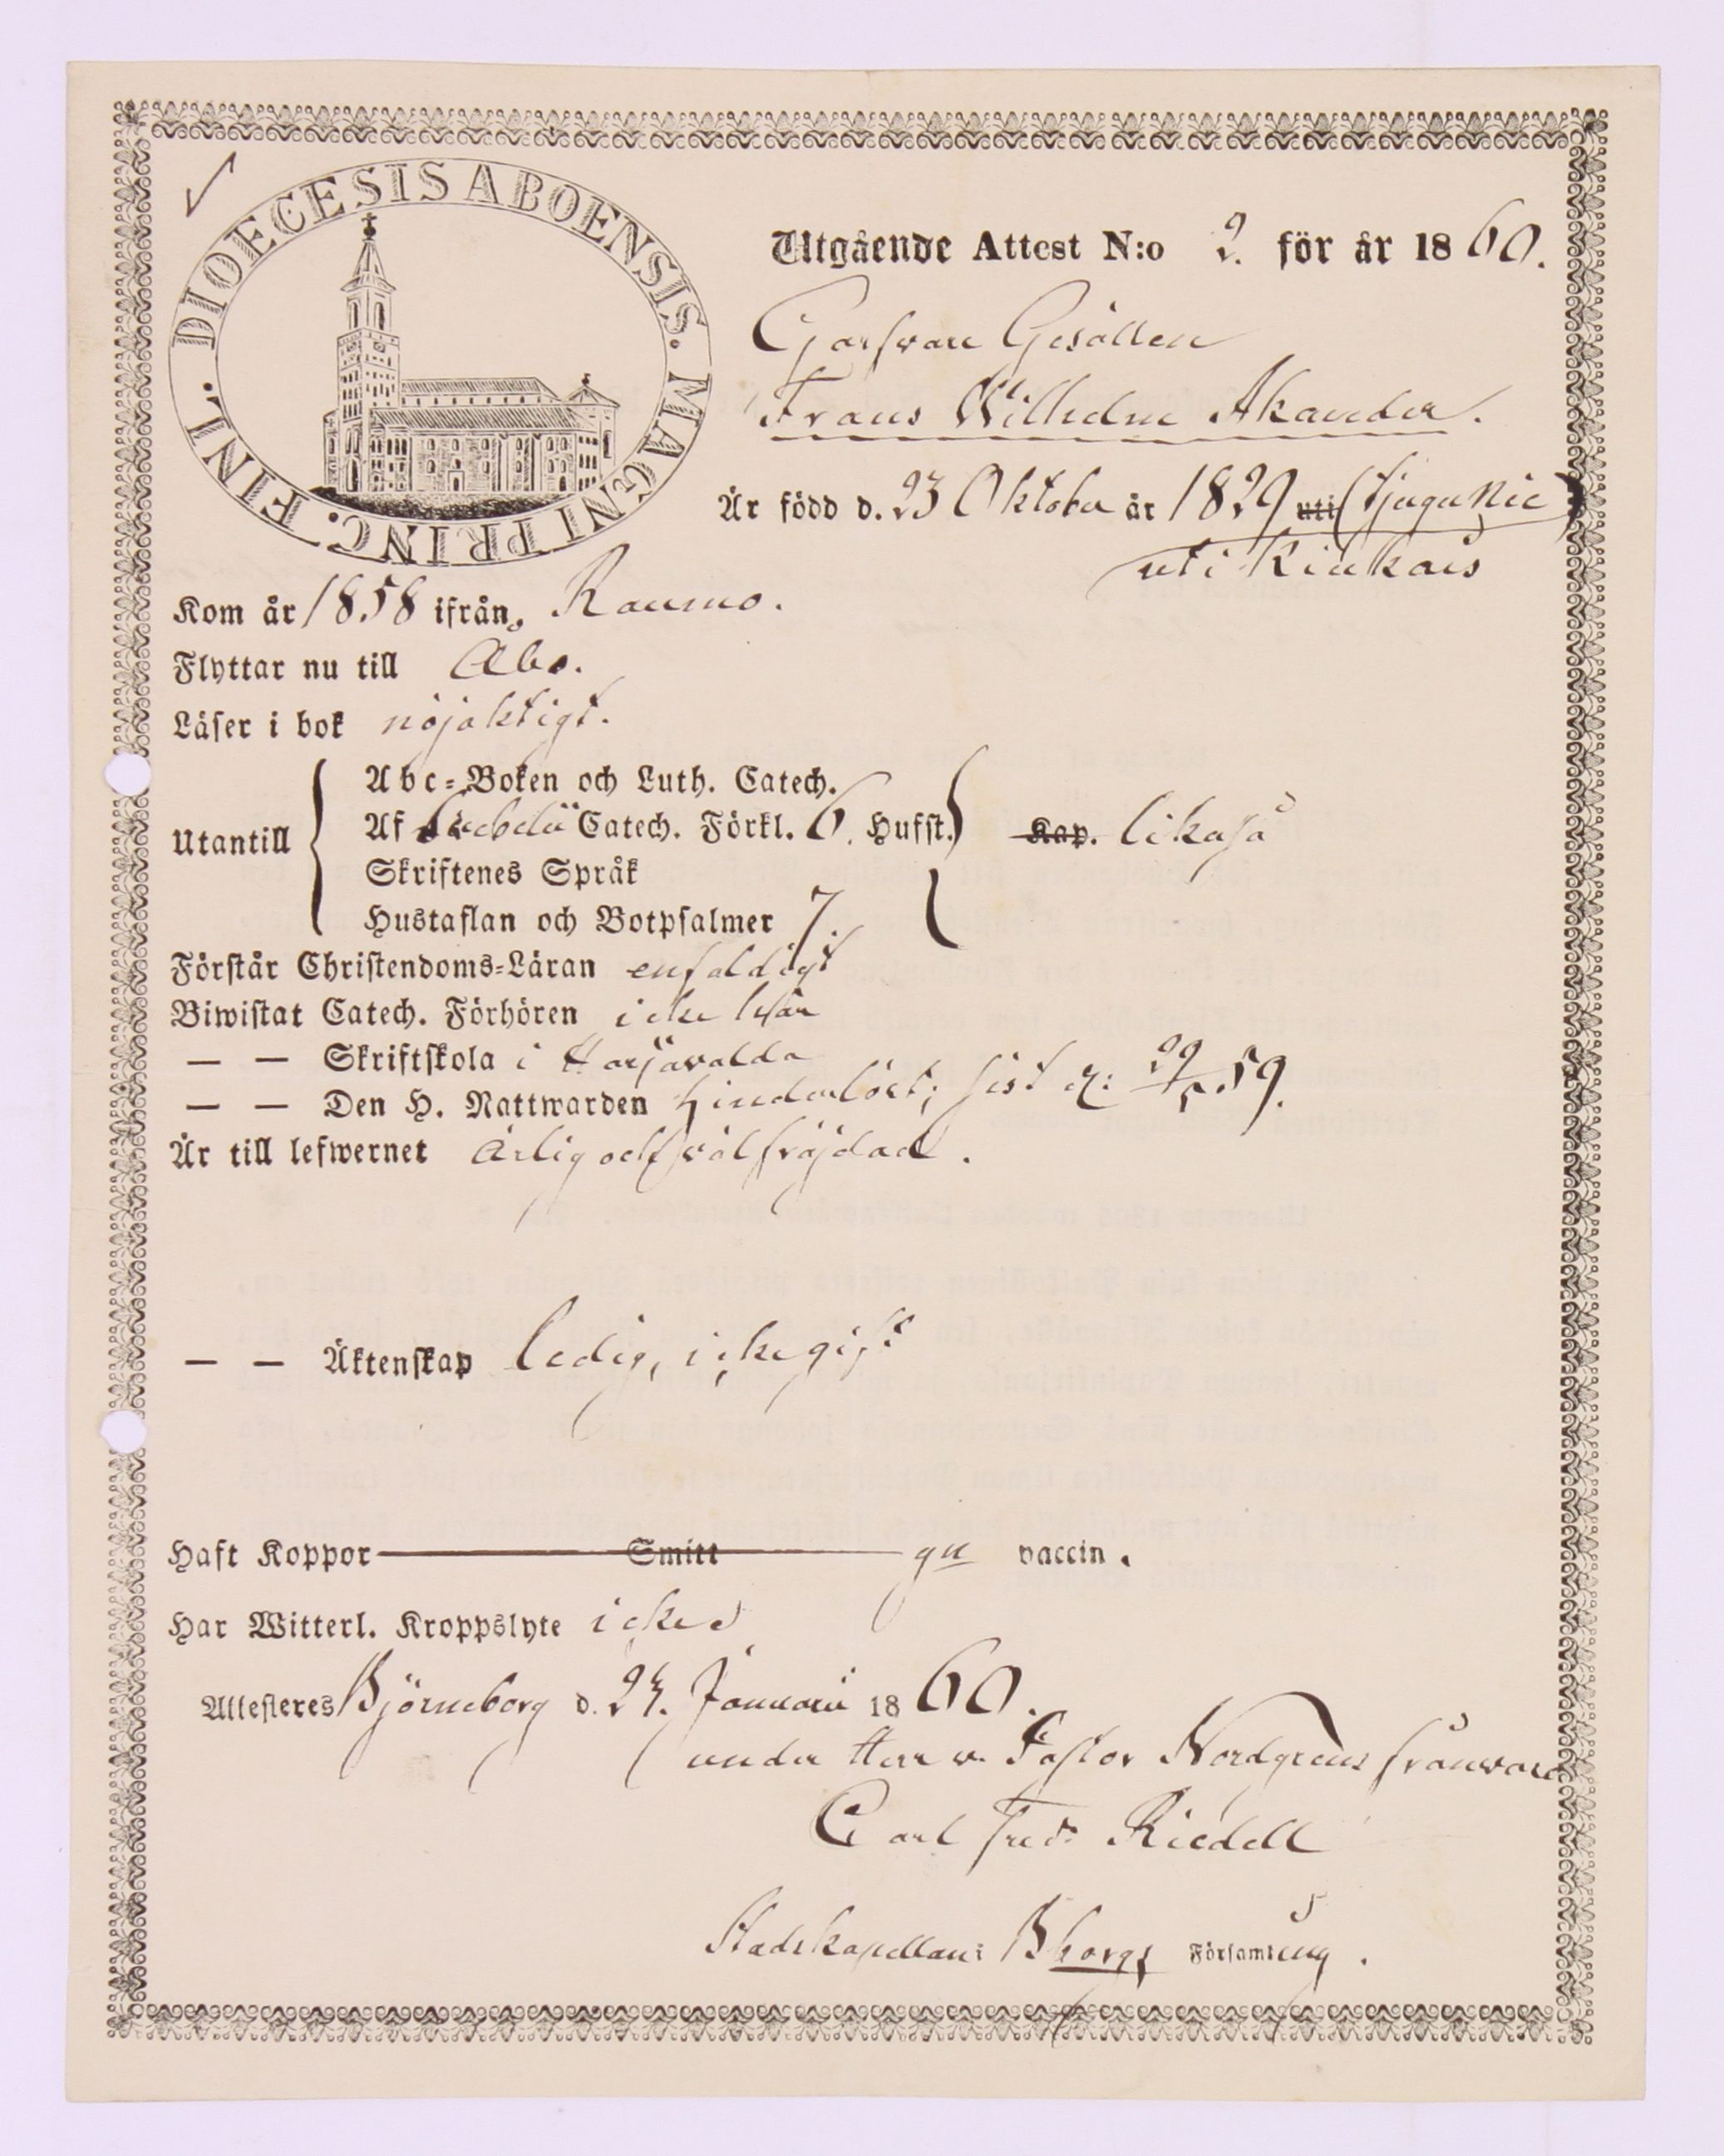 DIOECESIS ABOENSIS. MAGNI PRINC. FINL.
Utgående Attest N:o 2. för år 1860.
Garfvare Gesällen
Frans Wilhelm Akander.
Är född d. 23 Oktober år 1829 uti (tjugu nie)
uti Kiukais
Kom år 1858 ifrån, Raumo.
Flyttar nu till Åbo.
Läser i bok nöjaktigt.
Abc-Boken och Luth. Catech.
Utantill
Af Svebelii Catech. Förkl. 6. Hufst. Kap. likaså
Skriftenes Språk
Hustaflan och Botpsalmer 7.
Förstår Christendoms-Läran enfaldigt
Biwistat Catech. Förhören icke här
— — Skriftskola i Harjavalda
— — Den H. Nattwarden hinderlöst; sist d: 59.
Är till lefwernet ärlig och välfräjdad.
— — Äktenskap ledig, icke gift
Haft Koppor Smitt gn vaccin.
Har Witterl. Kroppslyte icke
Attesteres Björneborg d. 24. Januarii 1860.
under Herr v. Pastor Nordgrens frånvaro
Carl Fredr. Riedell
Stadskapellan i Bborgs Församling.